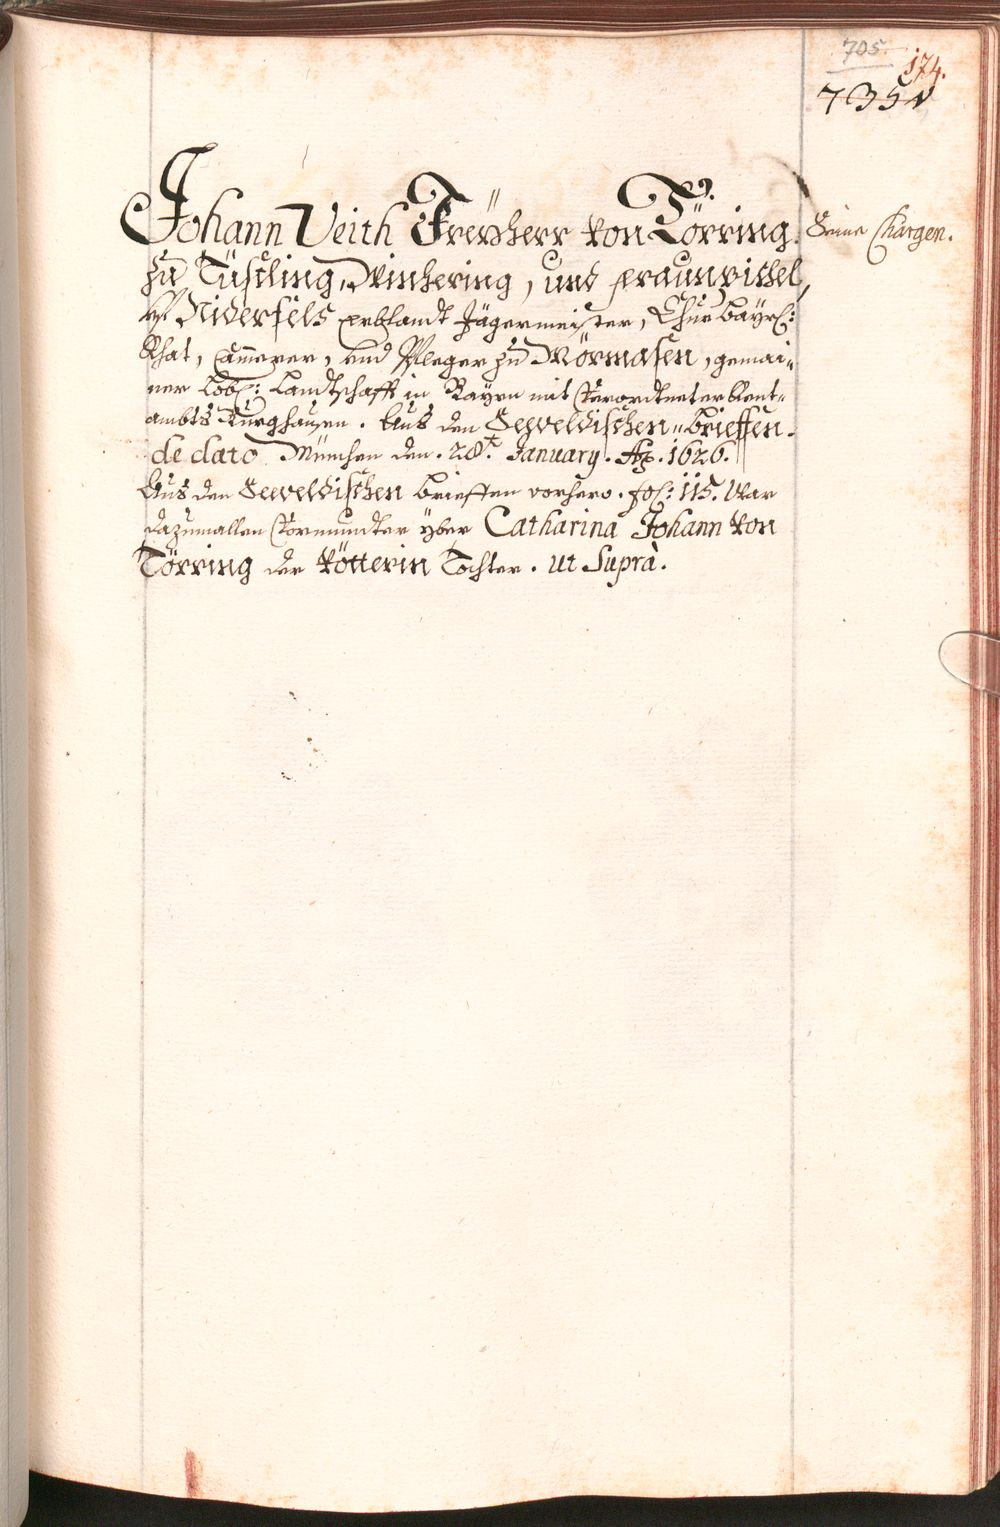 705.
174.
735
Johann Veith Freÿherr von Törring
Seine Chargen.
zu Tüstling, Winhering, und fraunvichel,
Niderfels erblandt Jägermeister, Chur Bayrl:
Rhat, Cammerer, und Pfleger zu Mörmasen, gemai=
ner Lobl: Landtschafft in Bayrn mit Verordtneter Rent=
ambts Burghausen. Aus den Seeveldischen Brieffen.
de dato München den. 28t. January. Ao. 1626.
Aus den Seeveldischen Brieffen vorhero. fol: 115. War
dazumallen Vormundter yber Catharina Johann von
Törring der Kötterin Tochter. ut Suprà.